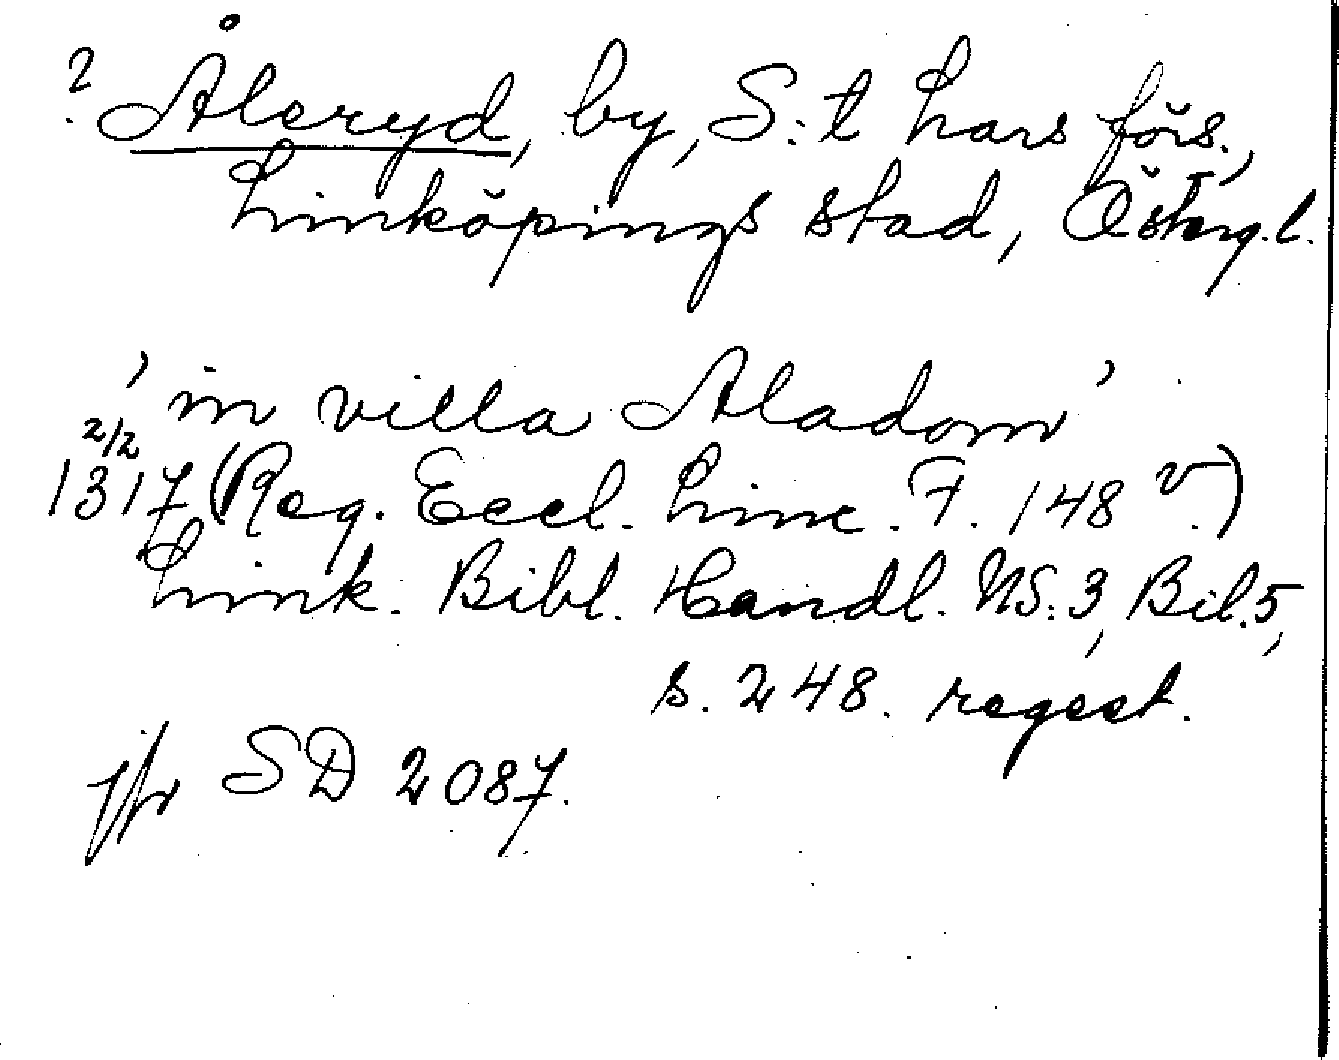 ? Åleryd, by, S:t Lars förs.,
Linköpings stad, Österg.l.
'in villa Aladom'
2/2
1317 (Reg. Eccl. Linc. F. 148 v.)
Link. Bibl. Handl. NS. 3, Bil. 5,
s. 248. regest.
jfr SD 2087.